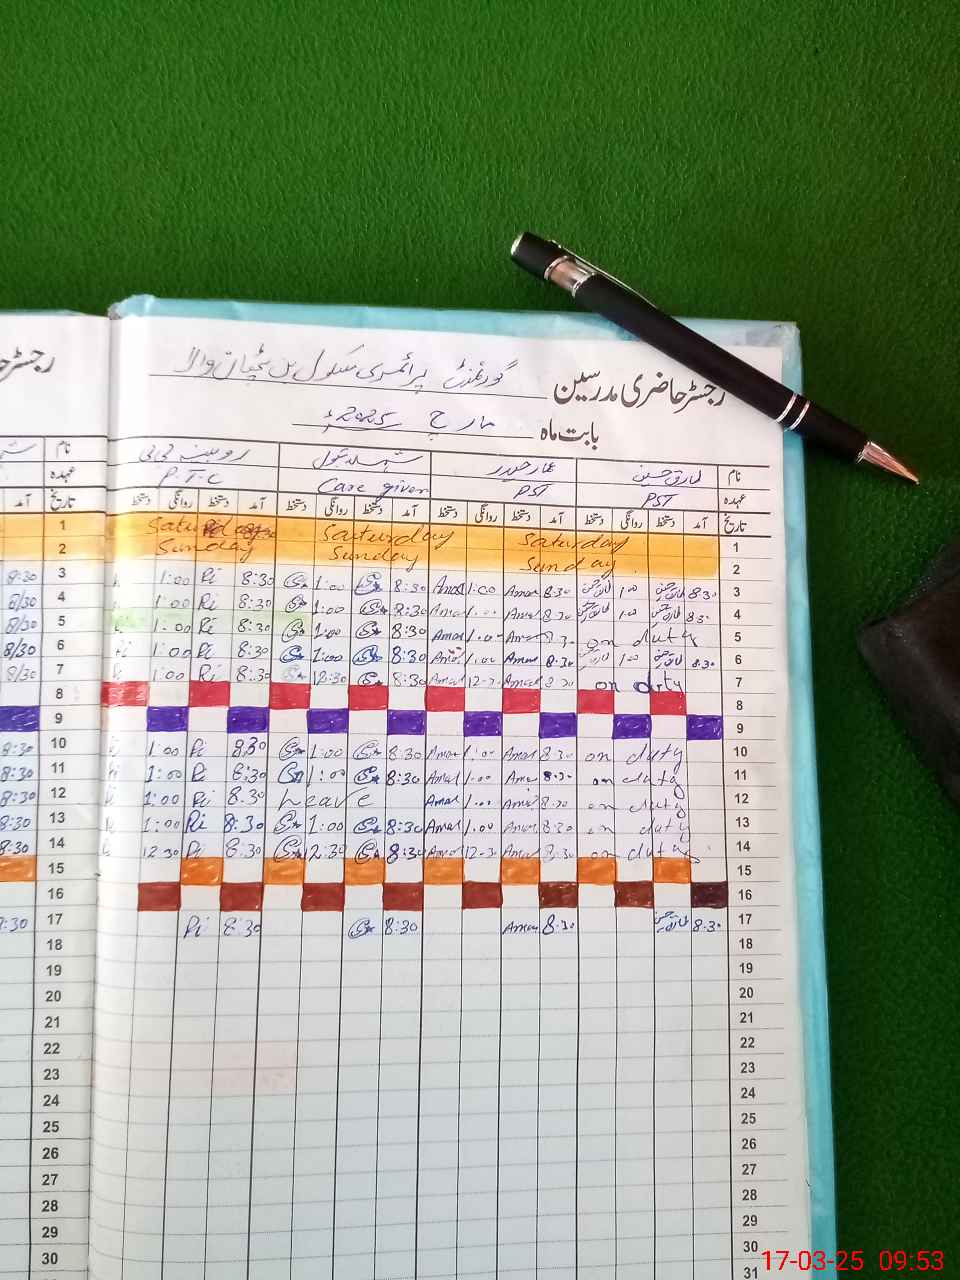 رجسٹر حاضری مدرسین گورنمنٹ پرائمری سکول بن والا
بابت ماہ مارچ 2025ء
نام طارق حسین عمار حیدر روبینہ بی بی نام
عہدہ PST PST Care giver P.T.C عہدہ
تاریخ آمد دستخط روانگی دستخط آمد دستخط روانگی دستخط آمد دستخط روانگی دستخط آمد دستخط روانگی دستخط تاریخ آمد
1 Saturday Saturday Saturday 1
2 Sunday Sunday Sunday 2
8:30 3 1:00 Ri 8:30 1:00 8:30 Amar 1:00 Amar 8:30 1:00 8:30 3
8/30 4 1:00 Ri 8:30 1:00 8:30 Amar 1:00 Amar 8:30 1:00 8:30 4
8/30 5 1:00 Ri 8:30 1:00 8:30 Amar 1:00 Amar 8:30 on duty 5
8/30 6 1:00 Ri 8:30 1:00 8:30 Amar 1:00 Amar 8:30 1:00 8:30 6
8/30 7 1:00 Ri 8:30 12:30 8:30 Amar 12:30 Amar 8:30 on duty 7
8 8
9 9
8:30 10 1:00 Ri 8:30 1:00 8:30 Amar 1:00 Amar 8:30 on duty 10
8:30 11 1:00 Ri 8:30 1:00 8:30 Amar 1:00 Amar 8:30 on duty 11
8:30 12 1:00 Ri 8:30 Leave Amar 1:00 Amar 8:30 on duty 12
8:30 13 1:00 Ri 8:30 1:00 8:30 Amar 1:00 Amar 8:30 on duty 13
8:30 14 12:30 Ri 8:30 12:30 8:30 Amar 12:30 Amar 8:30 on duty 14
15 15
16 16
8:30 17 Ri 8:30 8:30 Amar 8:30 8:30 17
18 18
19 19
20 20
21 21
22 22
23 23
24 24
25 25
26 26
27 27
28 28
29 29
30 30
31
17-03-25 09:53